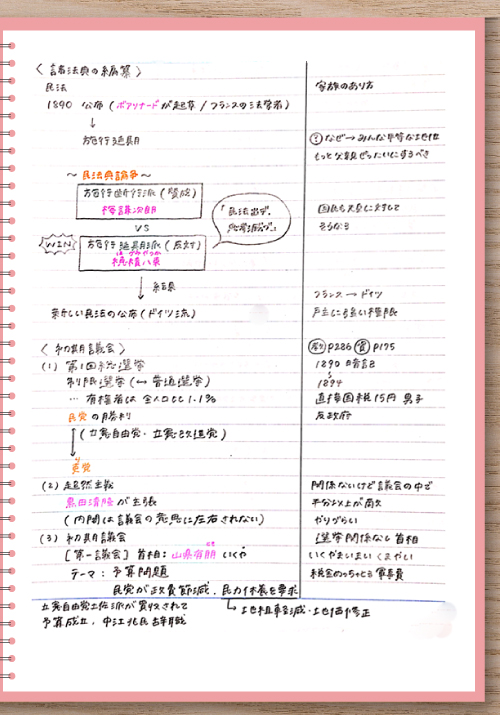 〈諸法典の編纂〉
民法
1890 公布(ボアソナードが起草/フランスの法学者)
↓
施行延期
～民法典論争～
施行断行派(賛成)
梅謙次郎
VS
WIN
施行延期派(反対)
ほづみやつか
穂積八束
「民法出デ、
忠孝滅ブ」
↓結果
新しい民法の公布(ドイツ流)
〈初期議会〉
(1) 第1回総選挙
制限選挙(↔普通選挙)
…有権者は全人口比1.1%
民党の勝利
(立憲自由党・立憲改進党)
吏党
(2) 超然主義
黒田清隆が主張
(内閣は議会の意思に左右されない)
(3) 初期議会
[第一議会] 首相:山県有朋 いくや
テーマ:予算問題
民党が政費節減・民力休養を要求
立憲自由党土佐派が買収されて
予算成立,中江兆民辞職
地租軽減・地価修正
家族のあり方
? なぜ→みんな平等な地位
もっと父親ぜったいにするべき
国民も天皇に対して
そうなる
フランス→ドイツ
戸主に強い権限
P286 P175
1890
1894
直接国税15円 男子
反政府
関係ないけど議会の中で
半分以上が南欠
やりづらい
選挙関係なし首相
いくやまいまい くまやい
税金のっちゃとう 軍事費